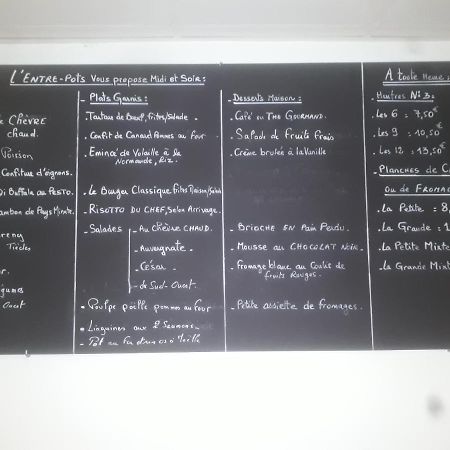 L'ENTRE-POTS Vous propose Midi et Soir :
CHÈVRE
chaud.
Poisson
Confiture d'oignons.
Di Buffala au PESTO.
Jambon de Pays Minute.
Plats Garnis :
Tartare de Bœuf, frites/salade.
Confit de Canard Pommes au four
Emincé de Volaille à la
Normande, Riz.
Le Burger Classique, frites Maison/Salade
RISOTTO DU CHEF, Selon Arrivage.
Salades - Au CHÈVRE CHAUD.
- Auvergnate.
- CÉSAR.
- du Sud-Ouest.
Poulpe poêlé pommes au four
Linguines aux 2 Saumons.
Pot au feu
Desserts Maison :
Café ou THÉ GOURMAND.
Salade de Fruits Frais
Crème brulée à la Vanille
BRIOCHE EN Pain Perdu.
Mousse au CHOCOLAT NOIR.
Fromage blanc au Coulis de
fruits Rouges.
Petite assiette de fromages.
A toute Heure :
Huîtres N°3 :
Les 6 = 7,50€
Les 9 : 10,50€
Les 12 : 13,50€
Planches de
ou de FROMA
La Petite = 8,
La Grande = 1
La Petite Mixte
La Grande Mixt